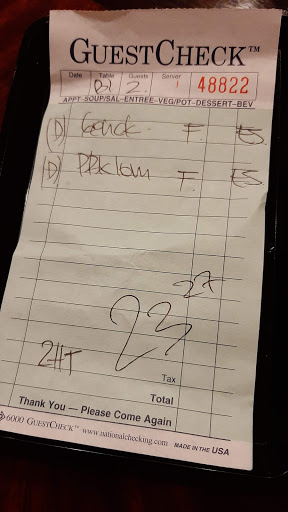 GUESTCHECK™
Date Table Guests Server
B1 2 1 48822
APPT-SOUP/SAL-ENTREE-VEG/POT-DESSERT-BEV
(D) F.
(D) F.
23 27
2HT
Tax
Total
Thank You — Please Come Again
6000 GUESTCHECK™ www.nationalchecking.com MADE IN THE USA